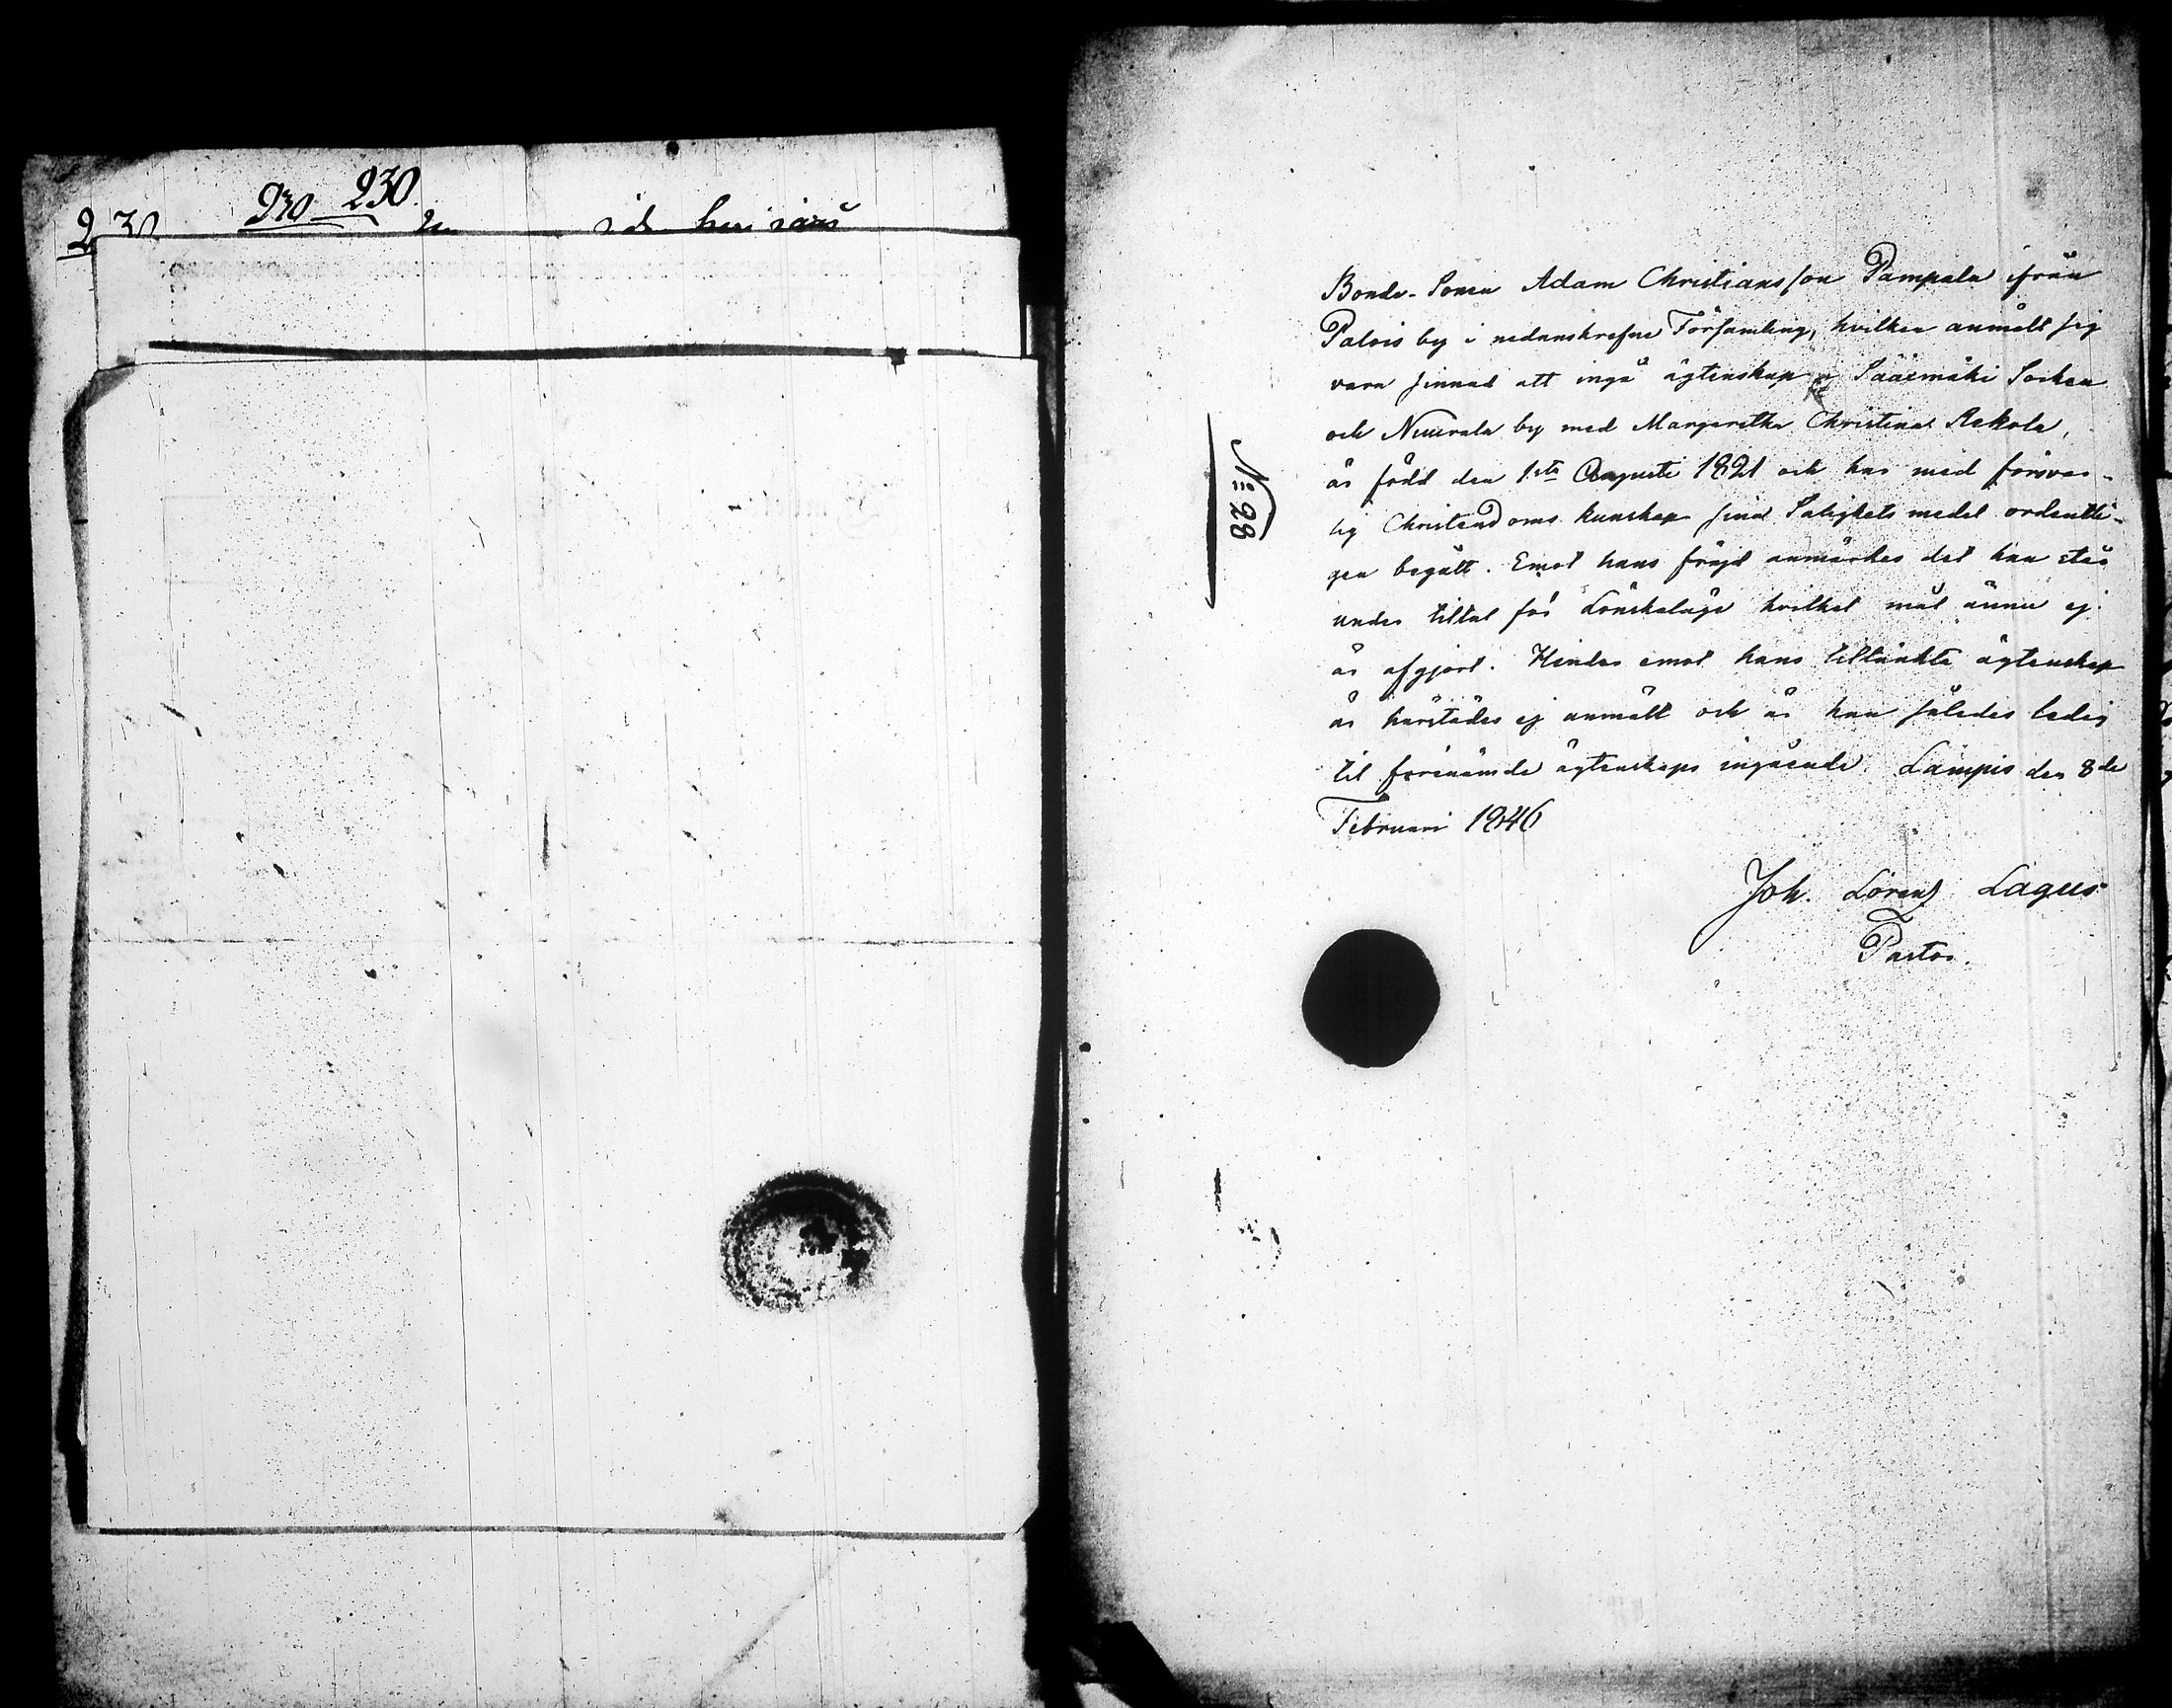 230.
230
230
N:o 28
Bonde-Sonen Adam Christiansson Pampala ifrån
Palois by i nedanskrefne Församling, hvilken anmält sig
vara sinnad att ingå ägtenskap i Sääxmäki Socken
och Nuurala by med Margaretha Christina Rekola,
är född den 1sta Augusti 1821 och har med försvar-
lig Christendoms kunskap sina Salighets medel ordentli-
gen begått. Emot hans fräjd anmärkes det han står
under tiltal för Lönskaläge hvilket mål ännu ej
är afgjort. Hinder emot hans tilltänkta ägtenskap
är härstädes ej anmält och är han således ledig
til förenämde ägtenskaps ingående. Lampis den 8de
Februari 1846
Joh. Lorenz Lagus
Pastor.